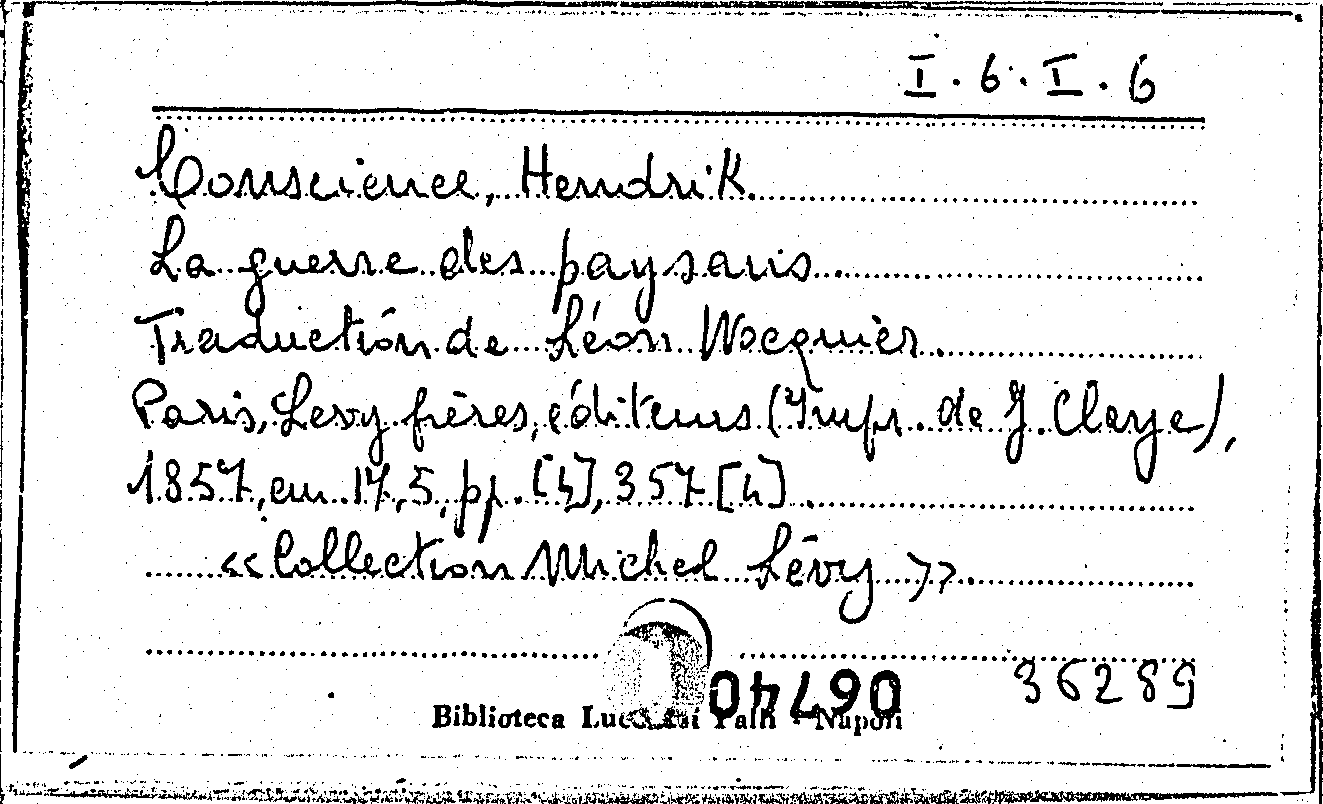 I. 6. I. 6
Conscience, Hendrik.
La guerre des paysans
Traduction de Léon Wocquier.
Paris, Levy frères, éditeurs (Impr. de J. Claye),
1857, cm. 17,5, pp. [4], 357 [4]
«Collection Michel Lévy».
36289
04790
Biblioteca Napoli